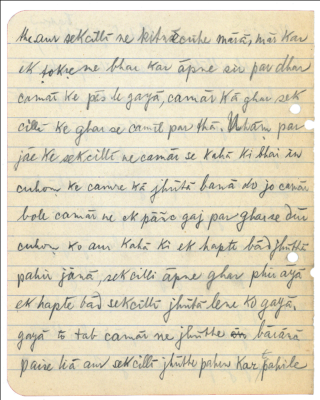 aur sekcillī ne kitne cuhe mārā, mār kar
ek ṭokre me bhar kar āpne sir par dhar
camār ke pās le gayā, camār kā ghar sek
cillī ke ghar se cār mīl par thā. Uhām par
jāe ke sekcillī ne camār se kahā ki bhāi in
cuhon ke camre kā jhūtā banā do jo camār
bole camār ne ek pānc gaj par ghar se dūr
cuhon ko aur kahā ki ek hapte bād jhūttā
pahir jānā, sekcilli āpne ghar phir ayā
ek hapte bād sekcillī jhūtā lene ko gayā,
gayā to tab camār ne jhutthe bāiānā
paise liā aur sekcillī jhūtte pahen kar pahile